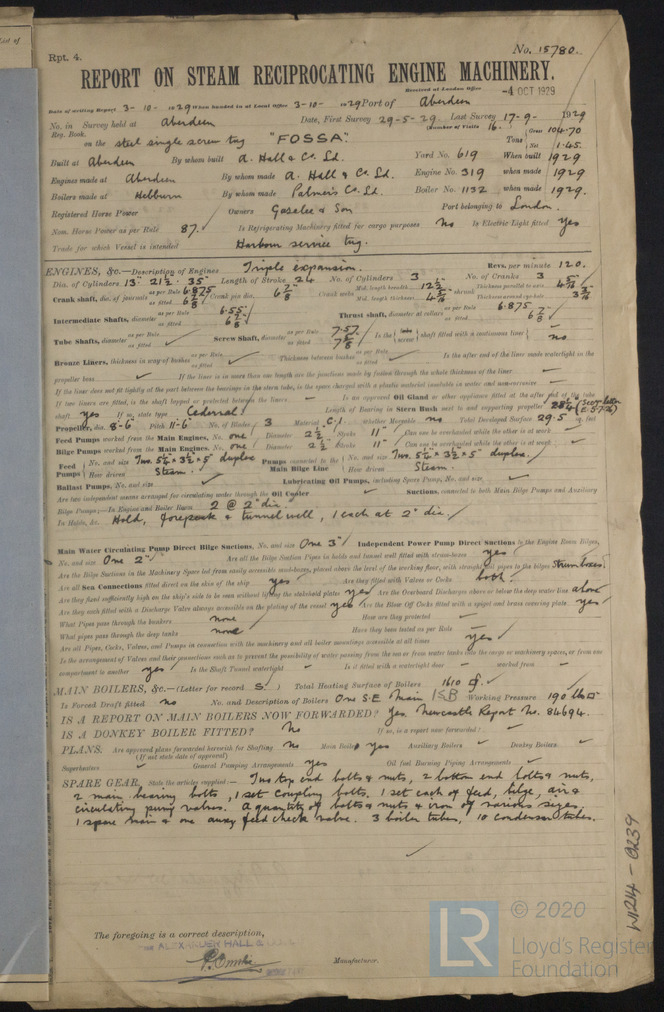 Rpt. 4.
No. 15780.
REPORT ON STEAM RECIPROCATING ENGINE MACHINERY.
Received at London Office -4 OCT 1929
Date of writing Report 3-10-1929 When handed in at Local Office 3-10-1929 Port of Aberdeen
No. in Survey held at Aberdeen Date, First Survey 29-5-29 Last Survey 17-9-1929
Reg. Book. (Number of Visits 16.
on the steel single screw tug "FOSSA". Tons Gross 104.70 Net 1.45.
Built at Aberdeen By whom built A. Hall & Co. Ld. Yard No. 619 When built 1929
Engines made at Aberdeen By whom made A. Hall & Co. Ld. Engine No. 319 when made 1929
Boilers made at Hebburn By whom made Palmers Co. Ld. Boiler No. 1132 when made 1929.
Registered Horse Power Owners Gaselee & Son Port belonging to London.
Nom. Horse Power as per Rule 87. Is Refrigerating Machinery fitted for cargo purposes no Is Electric Light fitted yes
Trade for which Vessel is intended Harbour service tug.
ENGINES, &c.—Description of Engines Triple expansion. Revs. per minute 120.
Dia. of Cylinders 13" 21½" 35" Length of Stroke 24 No. of Cylinders 3 No. of Cranks 3
Crank shaft, dia. of journals as per Rule 6.875 as fitted 6⅞ Crank pin dia. 6⅞" Crank webs Mid. length breadth 12½" Mid. length thickness
Intermediate Shafts, diameter as per Rule 6.55 as fitted Thrust shaft, diameter at collars as per Rule 6.875 as fitted 6⅞
Tube Shafts, diameter as per Rule as fitted Screw Shaft, diameter as per Rule 7.57 as fitted Is the tube screw shaft fitted with a continuous liner no
Bronze Liners, thickness in way of bushes as per Rule as fitted Thickness between bushes as per Rule as fitted Is the after end of the liner made watertight in the
propeller boss If the liner is in more than one length are the junctions made by fusion through the whole thickness of the liner
If the liner does not fit tightly at the part between the bearings in the stern tube, is the space charged with a plastic material insoluble in water and non-corrosive
If two liners are fitted, is the shaft lapped or protected between the liners Is an approved Oil Gland or other appliance fitted at the after end of the tube
shaft yes If so, state type Cederval Length of Bearing in Stern Bush next to and supporting propeller
Propeller, dia. 8-6" Pitch 11-6" No. of Blades 3 Material C.I. whether Moveable no Total Developed Surface 29.5 sq. feet
Feed Pumps worked from the Main Engines, No. one Diameter 2½" Stroke 11" Can one be overhauled while the other is at work
Bilge Pumps worked from the Main Engines, No. one Diameter 2½ Stroke 11" Can one be overhauled while the other is at work
Feed Pumps No. and size Two. 5¼" x 3½" x 5" duplex Pumps connected to the Main Bilge Line No. and size Two 5¼" x 3½" x 5" duplex.
How driven Steam. How driven Steam.
Ballast Pumps, No. and size Lubricating Oil Pumps, including Spare Pump, No. and size
Are two independent means arranged for circulating water through the Oil Cooler Suctions, connected to both Main Bilge Pumps and Auxiliary
Bilge Pumps;—In Engine and Boiler Room 2 @ 2" dia.
In Holds, &c. Hold, forepeak & tunnel well, 1 each at 2" dia.
Main Water Circulating Pump Direct Bilge Suctions, No. and size One 3" Independent Power Pump Direct Suctions to the Engine Room Bilges,
No. and size One 2" Are all the Bilge Suction Pipes in holds and tunnel well fitted with strum-boxes yes
Are the Bilge Suctions in the Machinery Space led from easily accessible mud-boxes, placed above the level of the working floor, with straight tail pipes to the bilges Strum boxes.
Are all Sea Connections fitted direct on the skin of the ship yes Are they fitted with Valves or Cocks both.
Are they fixed sufficiently high on the ship's side to be seen without lifting the stokehold plates yes Are the Overboard Discharges above or below the deep water line above
Are they each fitted with a Discharge Valve always accessible on the plating of the vessel yes Are the Blow Off Cocks fitted with a spigot and brass covering plate yes
What Pipes pass through the bunkers none How are they protected
What pipes pass through the deep tanks none Have they been tested as per Rule
Are all Pipes, Cocks, Valves, and Pumps in connection with the machinery and all boiler mountings accessible at all times yes
Is the arrangement of Valves and their connections such as to prevent the possibility of water passing from the sea or from water tanks into the cargo or machinery spaces, or from one
compartment to another yes Is the Shaft Tunnel watertight Is it fitted with a watertight door worked from
MAIN BOILERS, &c.—(Letter for record S.) Total Heating Surface of Boilers 1610
Is Forced Draft fitted no No. and Description of Boilers One S.E Main 1SB Working Pressure 190 lbs
IS A REPORT ON MAIN BOILERS NOW FORWARDED? Yes, Newcastle Report No. 84694.
IS A DONKEY BOILER FITTED? No If so, is a report now forwarded?
PLANS. Are approved plans forwarded herewith for Shafting No Main Boilers yes Auxiliary Boilers Donkey Boilers.
(If not state date of approval)
Superheaters General Pumping Arrangements yes Oil fuel Burning Piping Arrangements
SPARE GEAR. State the articles supplied:— Two top end bolts & nuts, 2 bottom end bolts & nuts,
2 main bearing bolts, 1 set coupling bolts. 1 set each of feed, bilge, air &
circulating pump valves. A quantity of bolts & nuts & iron of various sizes.
1 spare main & one auxy feed check valve. 3 boiler tubes, 10 condenser tubes.
The foregoing is a correct description,
ALEXANDER HALL & CO. LD.
Manufacturer.
W1214-0239
LR
© 2020
Lloyd's Register
Foundation